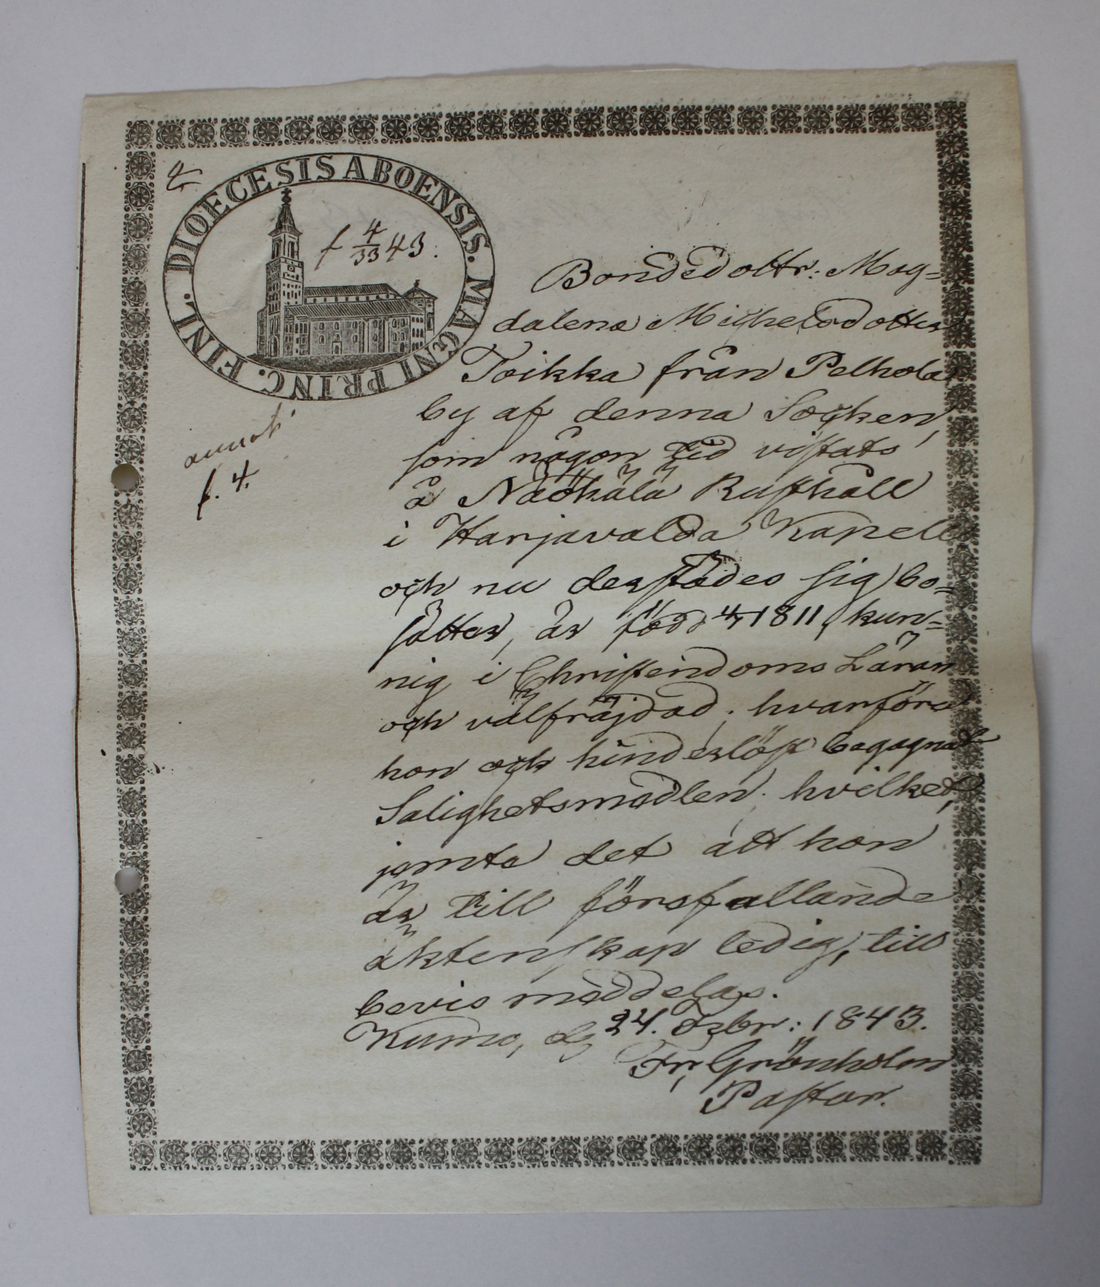 DIOECESIS ABOENSIS. MAGNI PRINC. FINL.
f 4/33 43.
f. 4.
Bondedottr: Mag-
dalena Michelsdotter
Toikka från Pelhola
by af denna Socken,
som någon tid vistats
å Näyhälä Rusthåll
i Harjavalda Kapell
och nu derstädes sig bo-
sätter, är född 4/7 1811, kun-
nig i Christendoms Läran
och välfräjdad, hvarföre
hon ock hinderlöst begagnat
Salighetsmedlen, hvilket,
jemte det att hon
är till förefallande
äktenskap ledig, till
bevis meddelas.
Kumo, dg 24. Xbr: 1843.
Fr. Grönholm
Pastor.